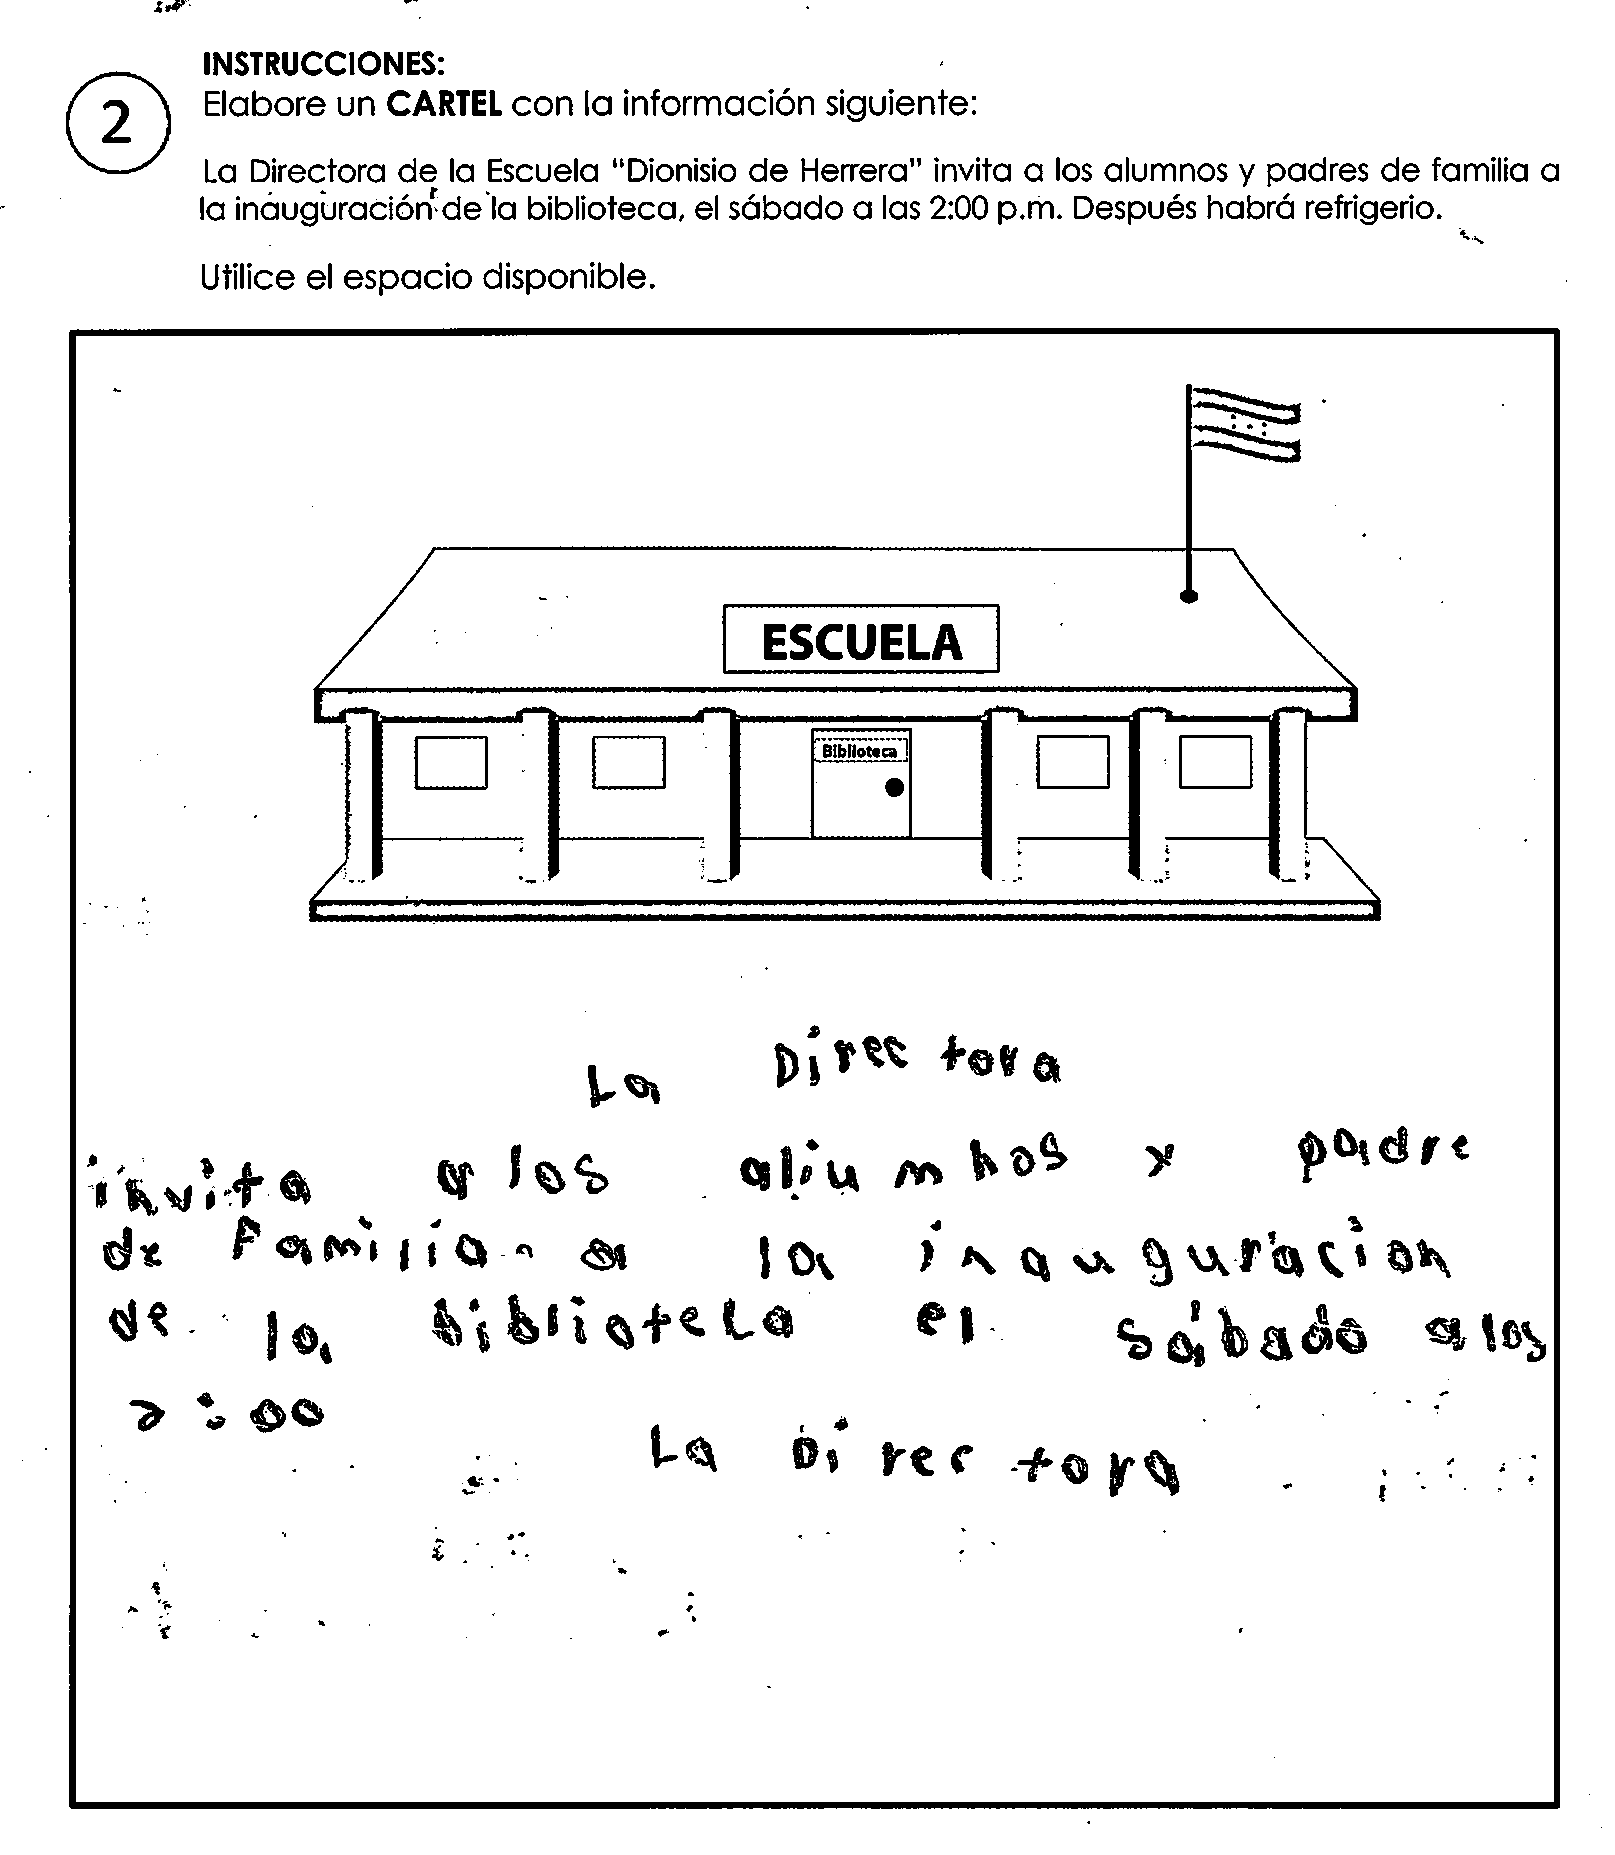 INSTRUCCIONES:
2
Elabore un CARTEL con la información siguiente:
La Directora de la Escuela "Dionisio de Herrera" invita a los alumnos y padres de familia a
la inauguración de la biblioteca, el sábado a las 2:00 p.m. Después habrá refrigerio.
Utilice el espacio disponible.
ESCUELA
Biblioteca
La Directora
invita a los aliumnos y padre
de Familia a la inauguracion
de la biblioteca el sábado a los
2:00
La Directora